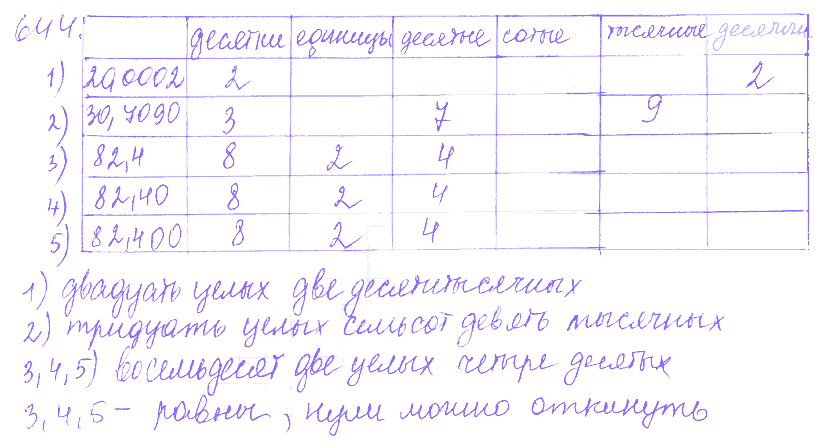 644.
десятки единицы десятые сотые тысячные десятитыс
1) 20,0002 2 2
2) 30,7090 3 7 9
3) 82,4 8 2 4
4) 82,40 8 2 4
5) 82,400 8 2 4
1) двадцать целых две десятитысячных
2) тридцать целых семьсот девять тысячных
3,4,5) восемьдесят две целых четыре десятых
3,4,5 - равны, нули можно откинуть